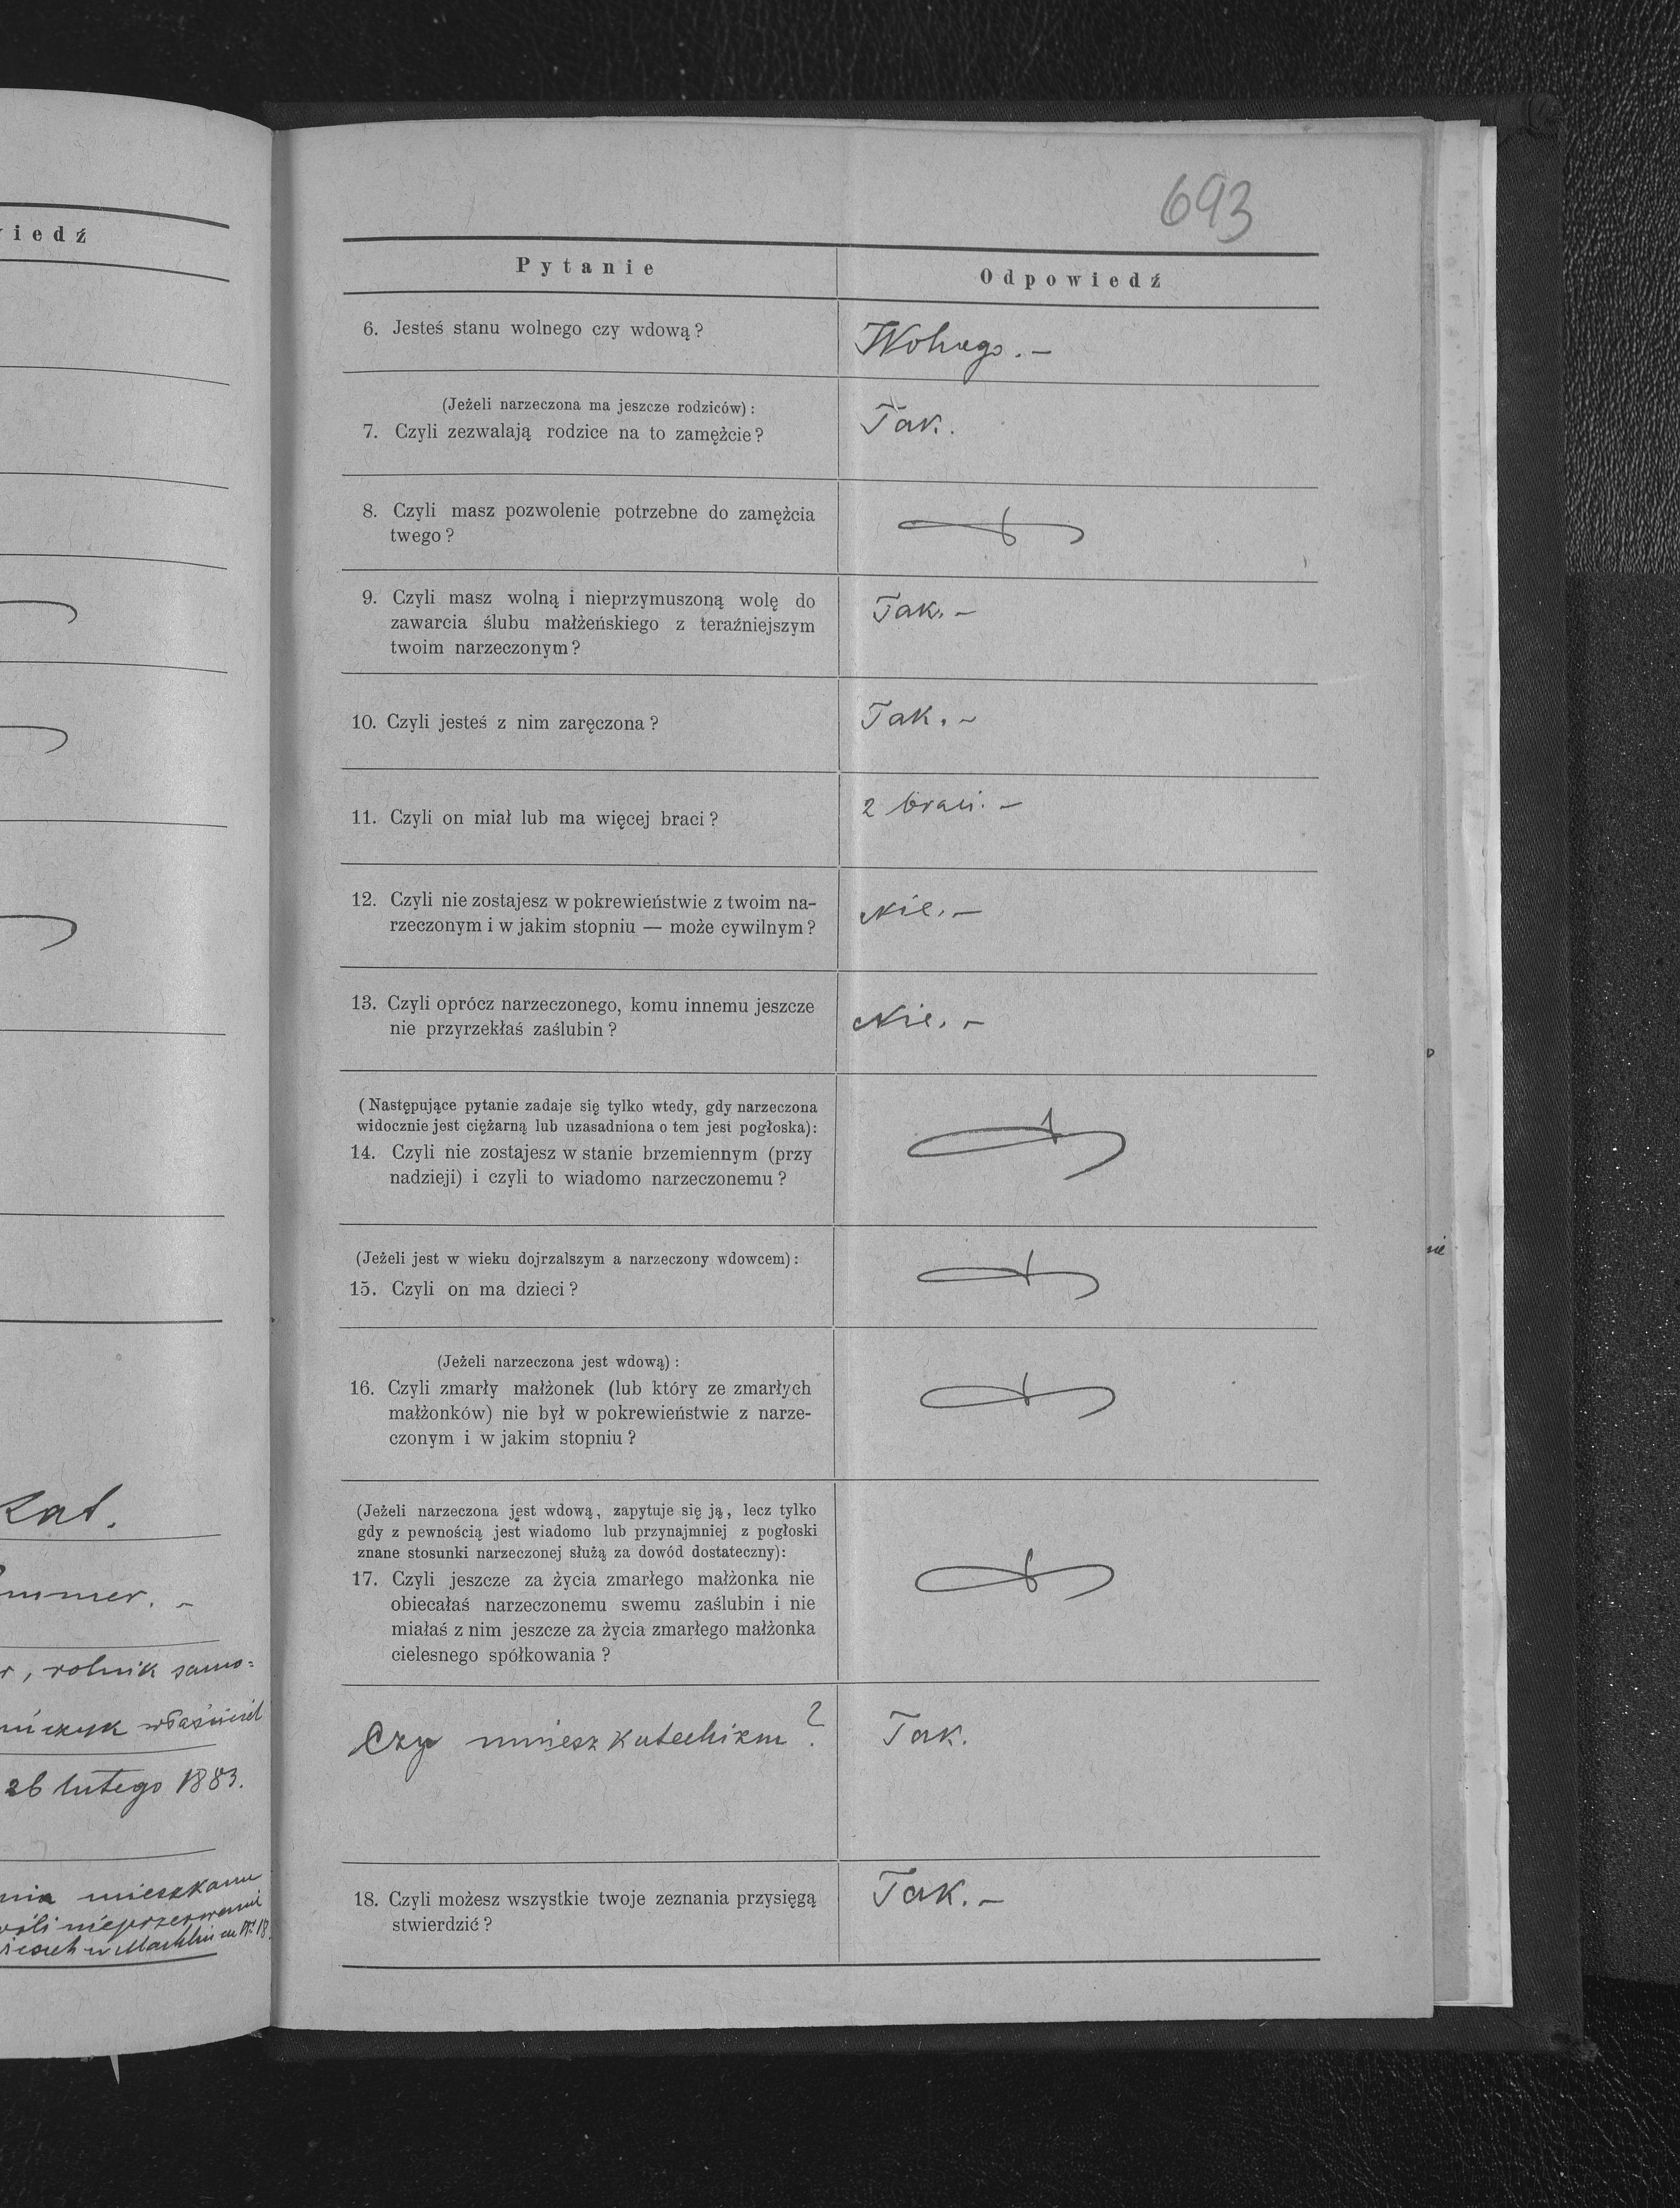 iedź
Kat.
rolnik samo=
właściciel
26 lutego 1883.
mieszkanie
693
Pytanie
Odpowiedź
6. Jesteś stanu wolnego czy wdową?
Wolnego. –
(Jeżeli narzeczona ma jeszcze rodziców):
7. Czyli zezwalają rodzice na to zamężcie?
Tak.
8. Czyli masz pozwolenie potrzebne do zamężcia
twego?
9. Czyli masz wolną i nieprzymuszoną wolę do
zawarcia ślubu małżeńskiego z teraźniejszym
twoim narzeczonym?
Tak. –
10. Czyli jesteś z nim zaręczona?
Tak. –
11. Czyli on miał lub ma więcej braci?
2 braci. –
12. Czyli nie zostajesz w pokrewieństwie z twoim na-
rzeczonym i w jakim stopniu — może cywilnym?
Nie. –
13. Czyli oprócz narzeczonego, komu innemu jeszcze
nie przyrzekłaś zaślubin?
Nie. –
(Następujące pytanie zadaje się tylko wtedy, gdy narzeczona
widocznie jest ciężarną lub uzasadniona o tem jest pogłoska):
14. Czyli nie zostajesz w stanie brzemiennym (przy
nadzieji) i czyli to wiadomo narzeczonemu?
(Jeżeli jest w wieku dojrzalszym a narzeczony wdowcem):
15. Czyli on ma dzieci?
(Jeżeli narzeczona jest wdową):
16. Czyli zmarły małżonek (lub który ze zmarłych
małżonków) nie był w pokrewieństwie z narze-
czonym i w jakim stopniu?
(Jeżeli narzeczona jest wdową, zapytuje się ją, lecz tylko
gdy z pewnością jest wiadomo lub przynajmniej z pogłoski
znane stosunki narzeczonej służą za dowód dostateczny):
17. Czyli jeszcze za życia zmarłego małżonka nie
obiecałaś narzeczonemu swemu zaślubin i nie
miałaś z nim jeszcze za życia zmarłego małżonka
cielesnego spółkowania?
Czy umiesz katechizm?
Tak.
18. Czyli możesz wszystkie twoje zeznania przysięgą
stwierdzić?
Tak. –